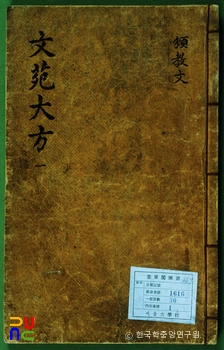 頒教文
文苑大方 一
1616
10
1
ⓒ 한국학중앙연구원